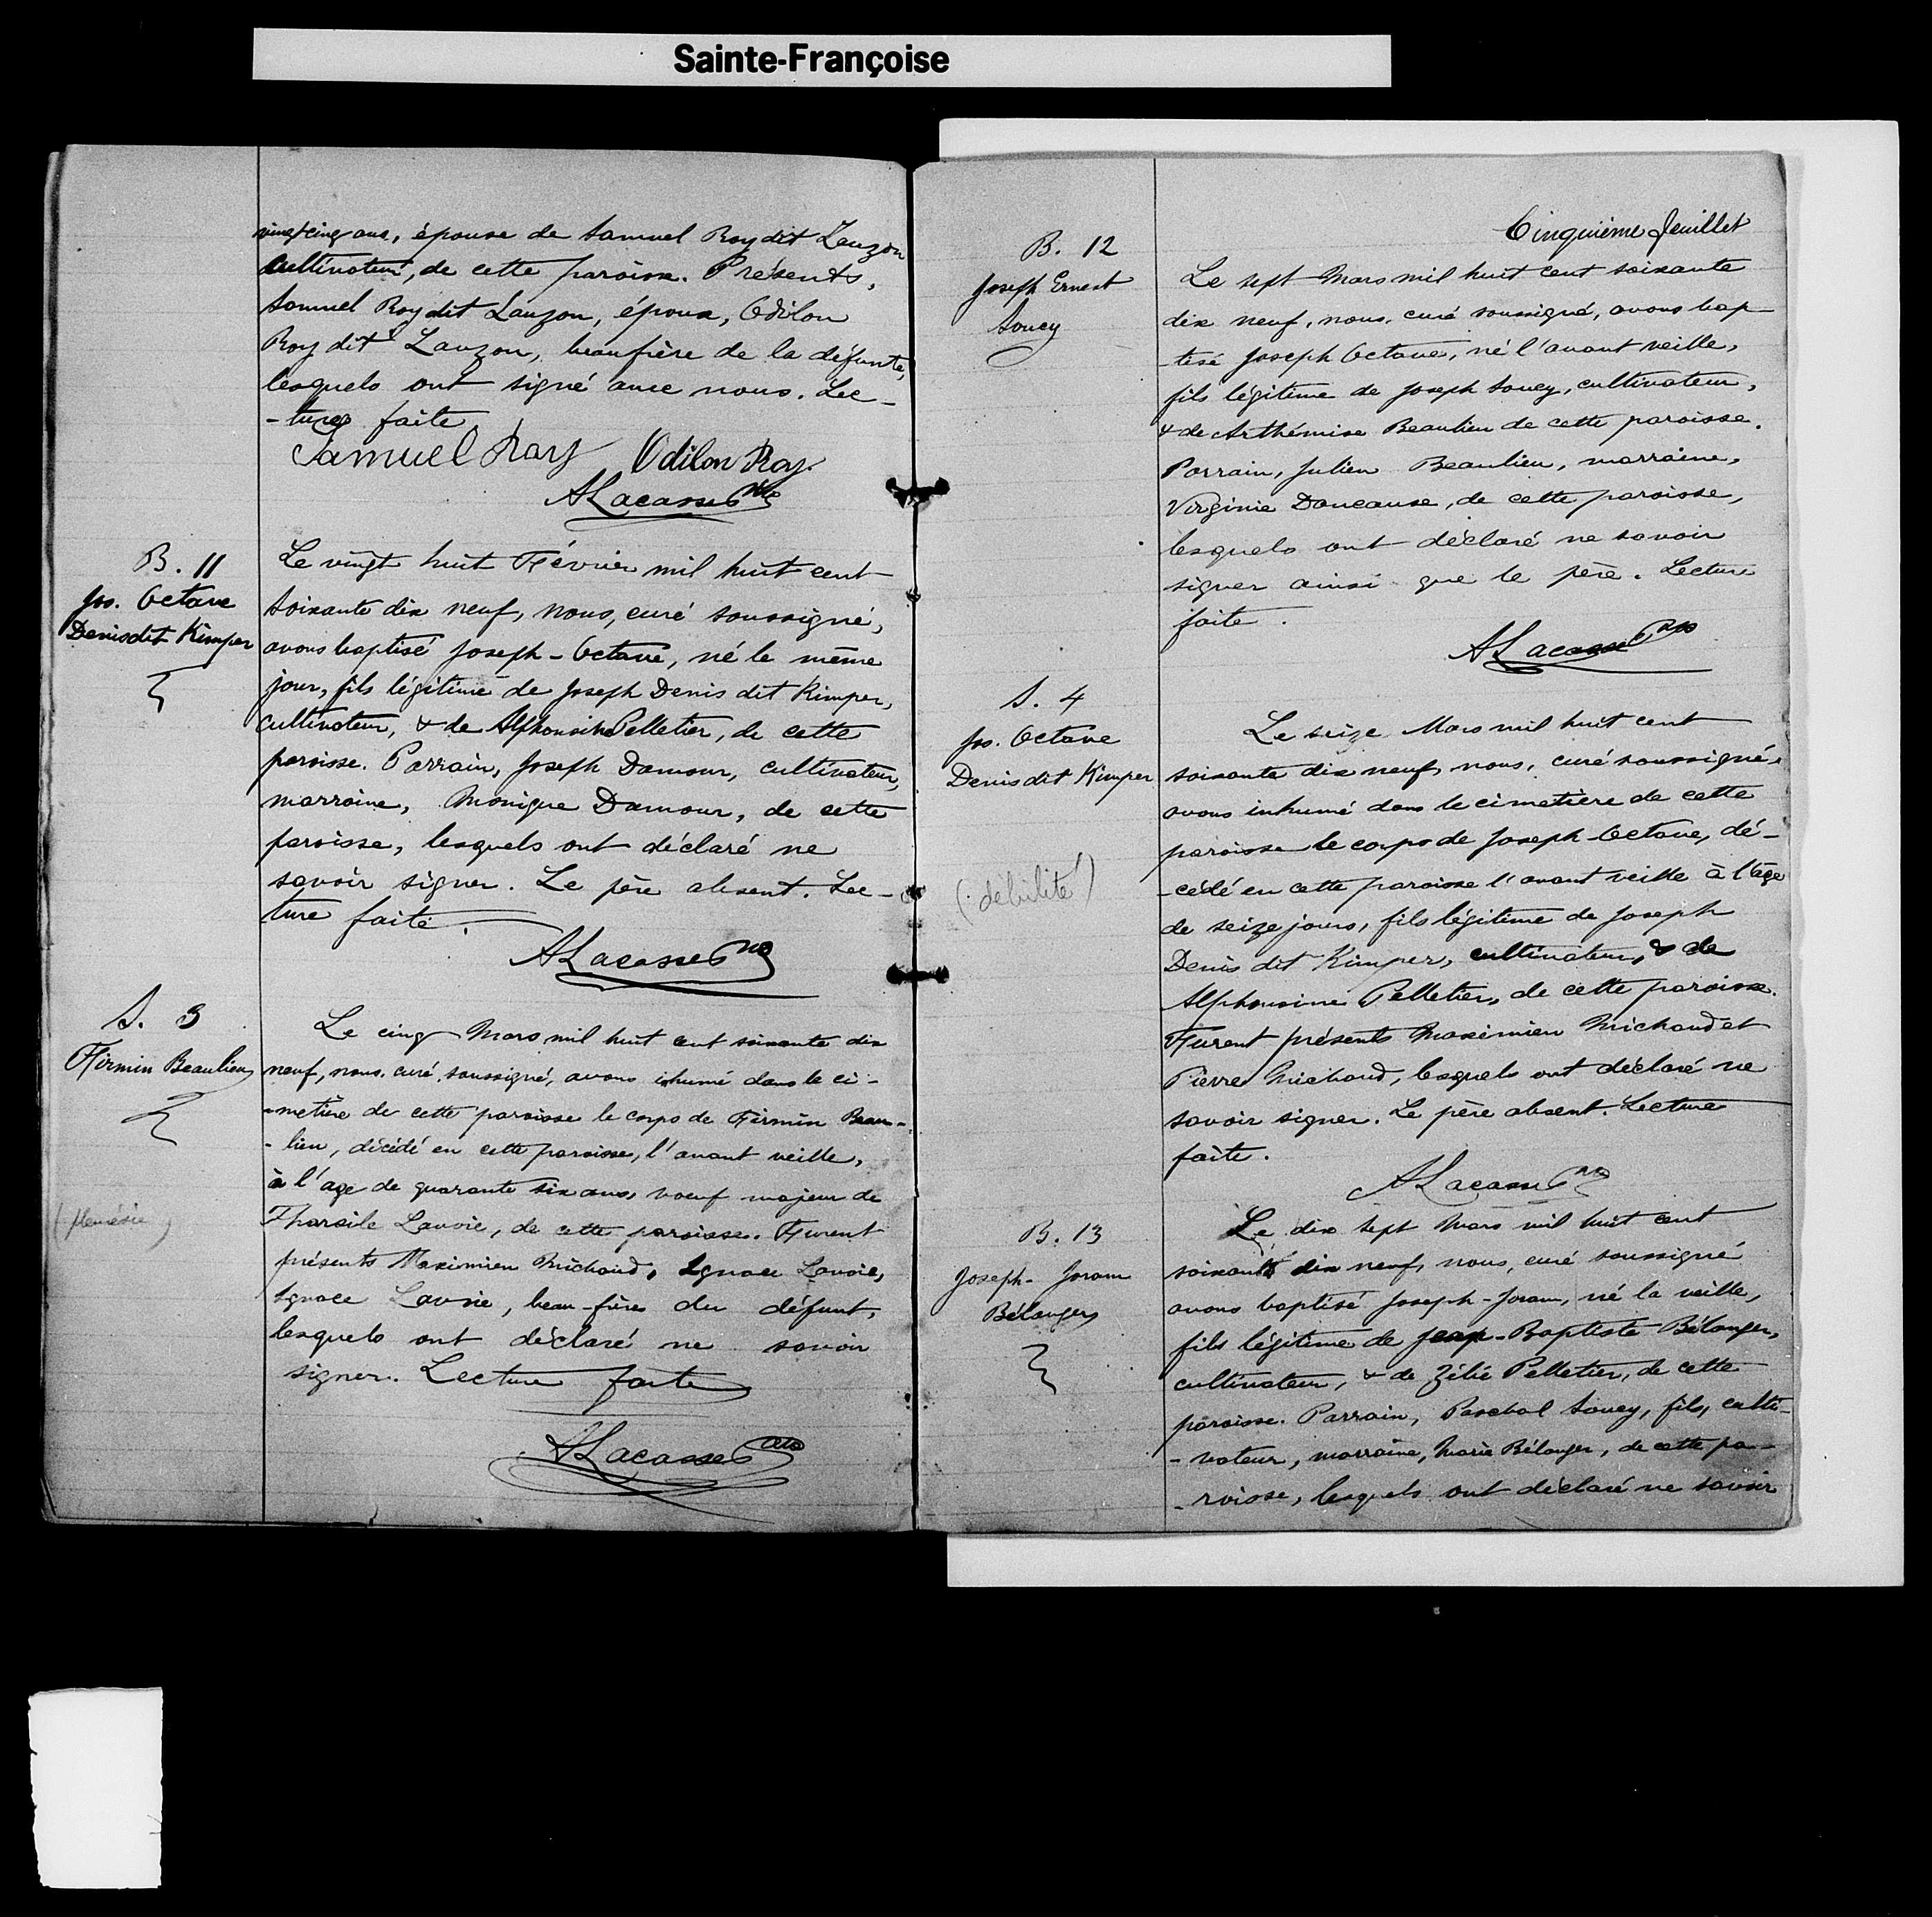 Sainte-Françoise
vingt cinq ans, épouse de Samuel Roy dit Lauzon
cultivateur, de cette paroisse. Présents,
Samuel Roy dit Lauzon, époux, Odilon
Roy dit Lauzon, beaufrère de la défunte,
lesquels ont signé avec nous. Lec-
-ture faite
Samuel Roy Odilon Roy
A Lacasse Ptre
B. 11
Jos. Octave
Denis dit Kimper
Le vingt huit Février mil huit cent
soixante dix neuf, nous, curé soussigné,
avons baptisé Joseph-Octave, né le même
jour, fils légitime de Joseph Denis dit Kimper,
cultivateur, & de Alphonsine Pelletier, de cette
paroisse. Parrain, Joseph Damour, cultivateur,
marraine, Monique Damour, de cette
paroisse, lesquels ont déclaré ne
savoir signer. Le père absent. Lec-
ture faite.
A Lacasse Ptre
S. 3
Firmin Beaulieu
(pleurésie)
Le cinq Mars mil huit cent soixante dix
neuf, nous, curé soussigné, avons inhumé dans le ci-
-metière de cette paroisse le corps de Firmin Beau-
-lieu, décédé en cette paroisse, l'avant veille,
à l'age de quarante six ans, voeuf majeur de
Tharsile Lavoie, de cette paroisse. Furent
présents Maximien Michaud, Ignace Lavoie,
Ignace Lavoie, beau-frère du défunt,
lesquels ont déclaré ne savoir
signer. Lecture faite
A Lacasse Ptre
Cinquième feuillet
B. 12
Joseph Ernest
Soucy
Le sept Mars mil huit cent soixante
dix neuf, nous, curé soussigné, avons bap-
-tisé Joseph Octave, né l'avant veille,
fils légitime de Joseph Soucy, cultivateur,
& de Arthémise Beaulieu de cette paroisse.
Parrain, Julien Beaulieu, marraine,
Virginie Doucause, de cette paroisse,
lesquels ont déclaré ne savoir
signer ainsi que le père. Lecture
faite.
A Lacasse Ptre
S. 4
Jos. Octave
Denis dit Kimper
(débilité)
Le seize Mars mil huit cent
soixante dix neuf, nous, curé soussigné,
avons inhumé dans le cimetière de cette
paroisse le corps de Joseph-Octave, dé-
-cédé en cette paroisse l'avant veille à l'âge
de seize jours, fils légitime de Joseph
Denis dit Kimper, cultivateur, & de
Alphonsine Pelletier, de cette paroisse.
Furent présents Maximien Michaud et
Pierre Michaud, lesquels ont déclaré ne
savoir signer. Le père absent. Lecture
faite.
A Lacasse Ptre
B. 13
Joseph-Joram
Bélanger
Le dix sept Mars mil huit cent
soixante dix neuf, nous, curé soussigné
avons baptisé Joseph-Joram, né la veille,
fils légitime de Jean-Baptiste Bélanger,
cultivateur, & de Zélie Pelletier, de cette
paroisse. Parrain, Paschal Soucy, fils, culti-
-vateur, marraine, Marie Bélanger, de cette pa-
-roisse, lesquels ont déclaré ne savoir